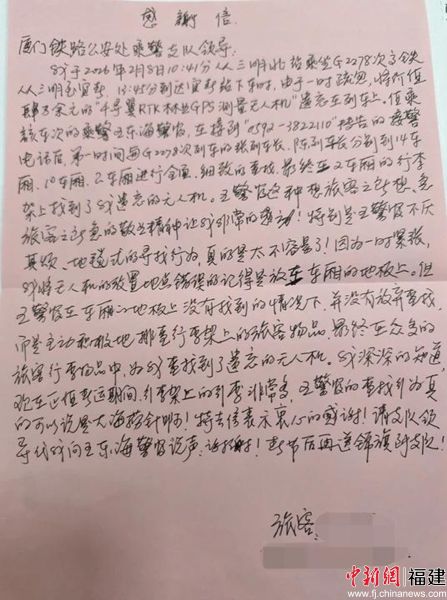 感谢信
厦门铁路公安处乘警支队领导:
我于2026年2月8日10:41分从三明北站乘坐G2278次高铁
从三明到宜宾,13:45分到达宜宾站下车时,由于一时疏忽,将价值
肆万余元的"4号翼RTK林业GPS测量无人机"遗忘在列车上。值乘
该车次的乘警王东海警官,在接到"0592-3822110"报告的接警
电话后,第一时间与G2278次列车的张列车长、陈列车长分别到14车
厢、10车厢、2车厢进行全面、细致的查找,最终在2车厢的行李
架上找到了我遗忘的无人机。王警官这种想旅客之所想、急
旅客之所急的敬业精神让我非常的感动!特别是王警官不厌
其烦、地毯式的寻找行为,真的是太不容易了!因为一时紧张,
我将无人机的放置地点错误的记得是放在车厢的地板上。但
王警官在车厢地板上没有找到的情况下,并没有放弃查找,
而是主动积极地排查行李架上的旅客物品,最终在众多的
旅客行李物品中为我查找到了遗忘的无人机。我深深的知道,
现在正值春运期间,行李架上的行李非常多,王警官的查找行为真
的可以说是大海捞针啊!特去信表示衷心的感谢!请支队领
导代我向王东海警官说声:谢谢!春节后再送锦旗到支队!
旅客:
中新网 福建
www.fj.chinanews.com